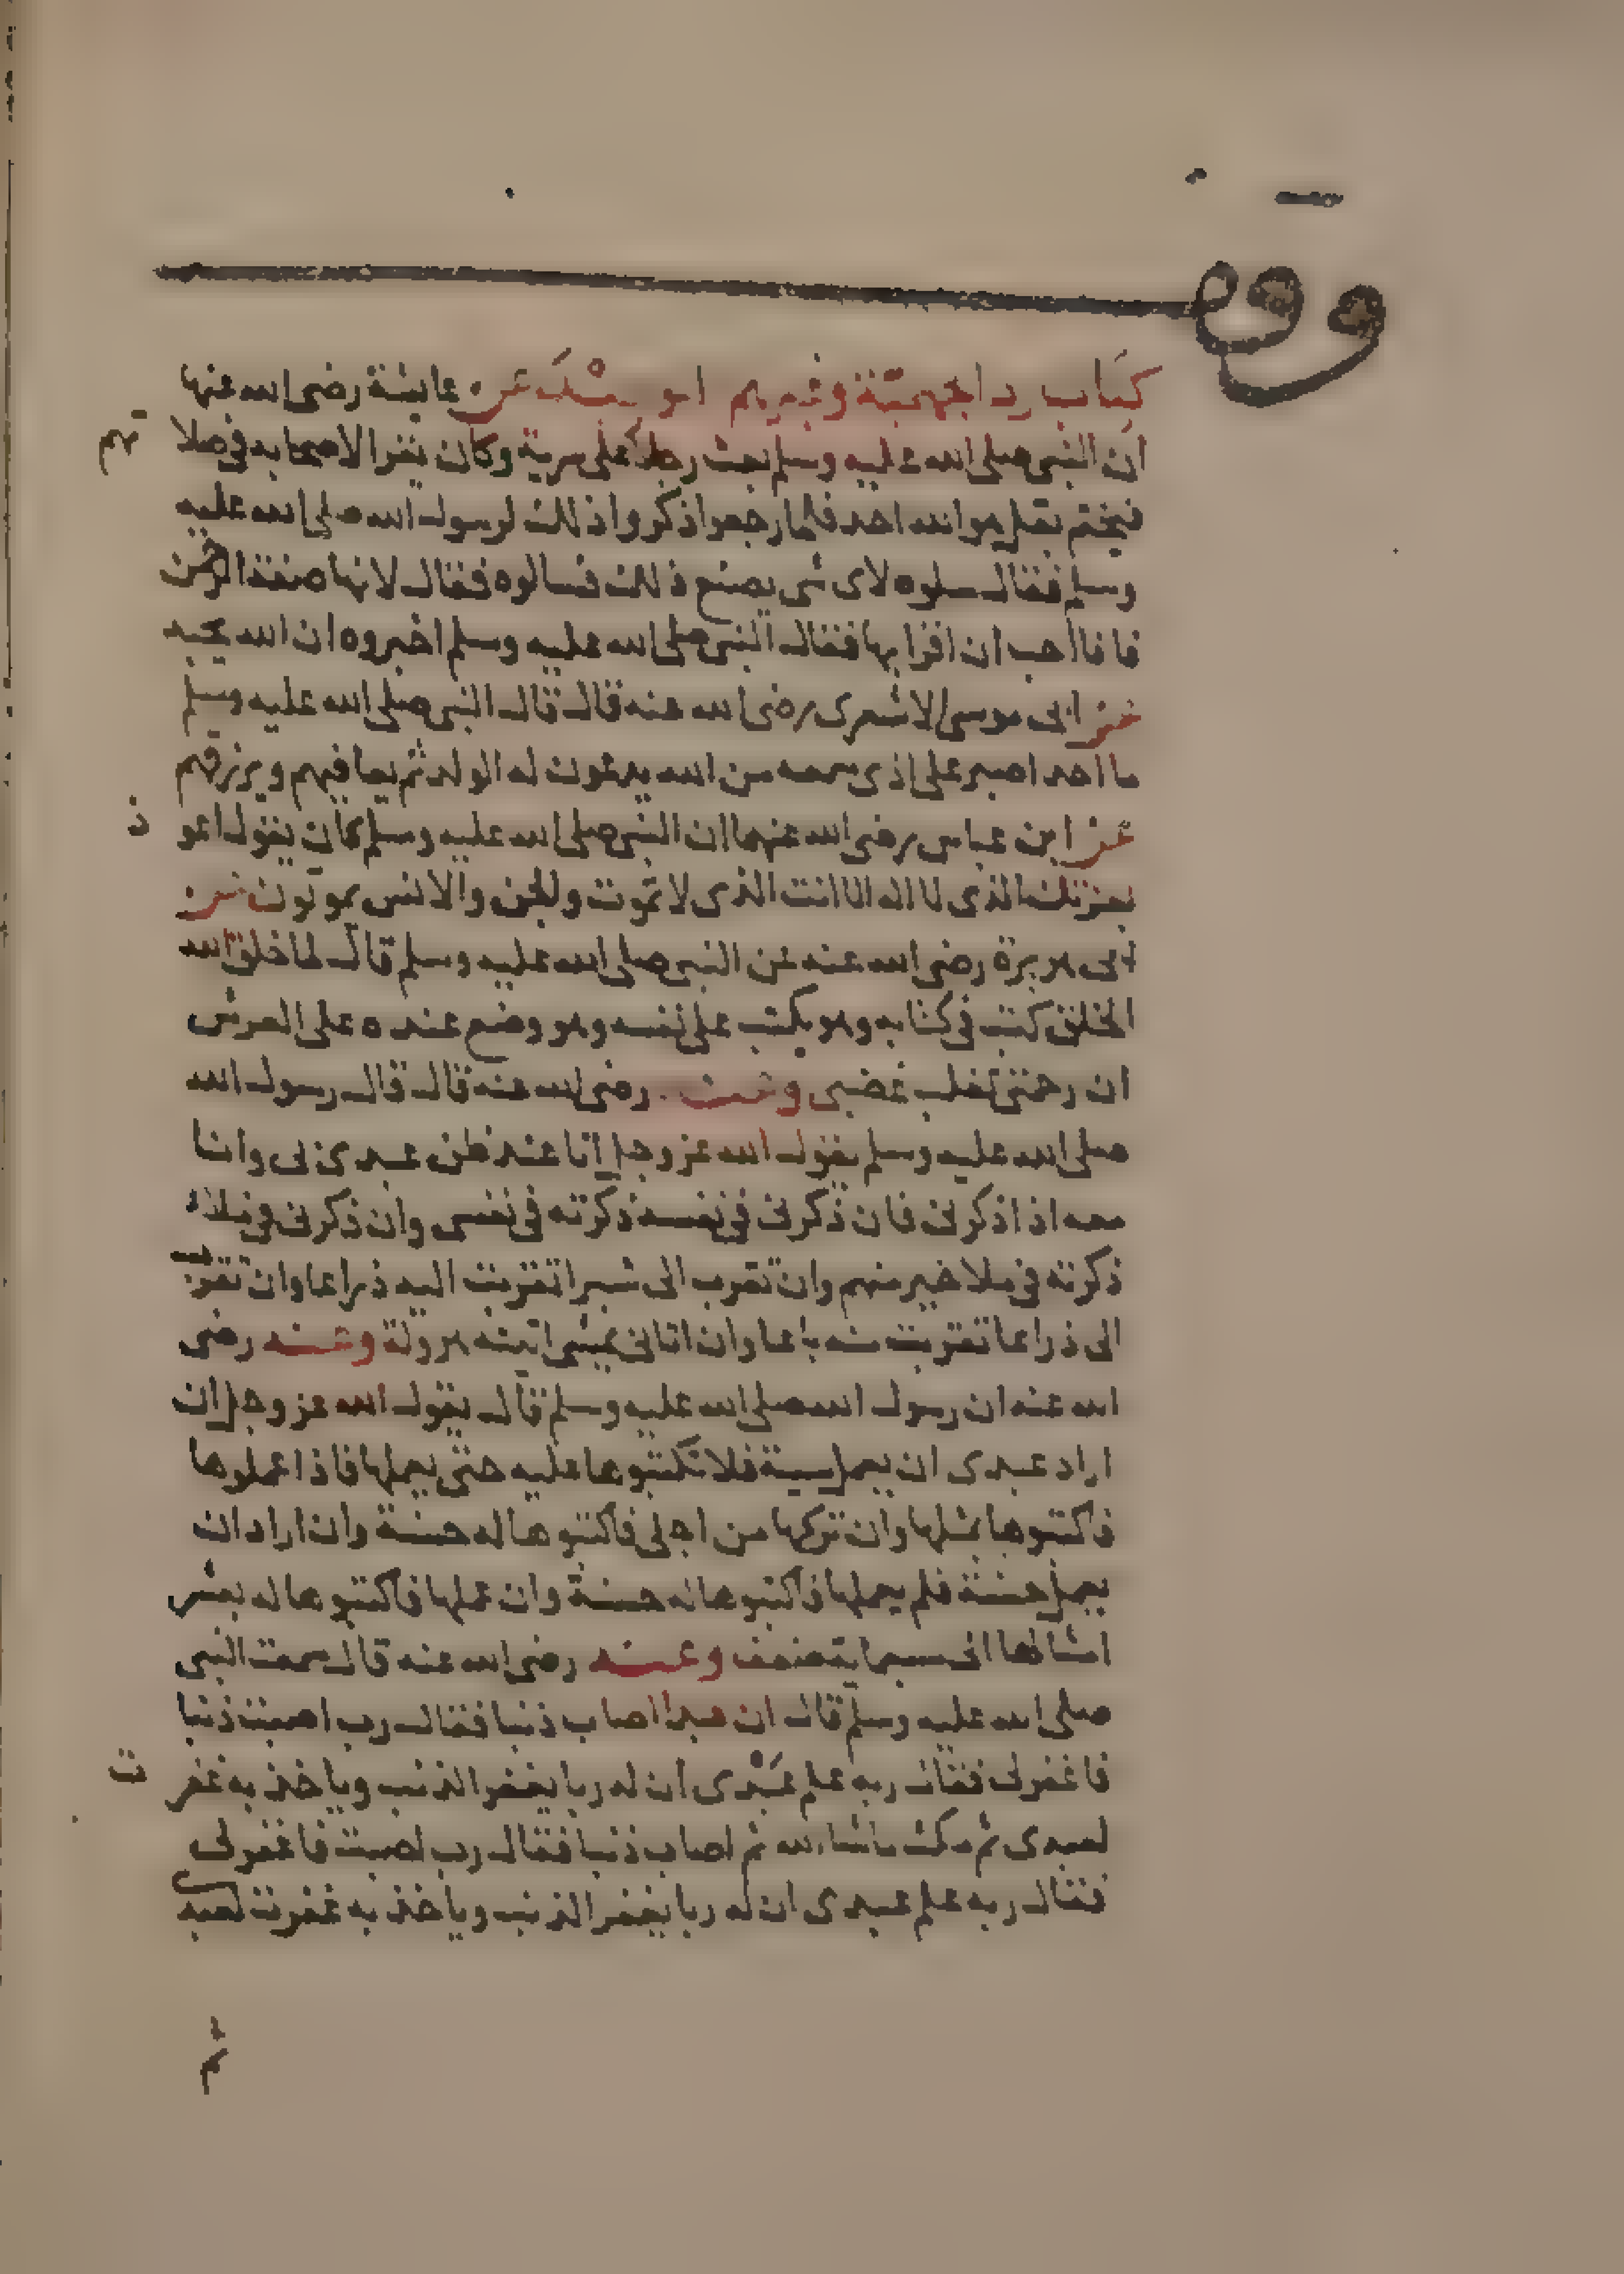 وقف
كتاب رد الجهمية وغيرهم عن عايشة رضى الله عنها
ان النبى صلى الله عليه وسلم بعث رجلا على سرية وكان يقرا لاصحابه فى صلا
تهم
فيختم بقل هو الله احد فلما رجعوا ذكروا ذلك لرسول الله صلى الله عليه
وسلم فقال سلوه لاى شى يصنع ذلك فسالوه فقال لانها صفة الرحمن
فانا احب ان اقرا بها فقال النبى صلى الله عليه وسلم اخبروه ان الله يحبه
عن ابى موسى الاشعرى رضى الله عنه قال قال النبى صلى الله عليه وسلم
ما احد اصبر على اذى سمعه من الله يدعون له الولد ثم يعافيهم ويرزقهم
عن ابن عباس رضى الله عنهما ان النبى صلى الله عليه وسلم كان يقول اعو
ذ
بعزتك الذى لا اله الا انت الذى لا تموت والجن والانس يموتون عن
ابى هريرة رضى الله عنه عن النبى صلى الله عليه وسلم قال لما خلق الله
الخلق كتب فى كتابه وهو يكتب على نفسه وهو وضع عنده على العرش
ان رحمتى تغلب غضبى وعنه رضى الله عنه قال قال رسول الله
صلى الله عليه وسلم يقول الله عز وجل انا عند ظن عبدى بى وانا
معه اذا ذكرنى فان ذكرنى فى نفسه ذكرته فى نفسى وان ذكرنى فى ملاء
ذكرته فى ملا خير منهم وان تقرب الى شبرا تقربت اليه ذراعا وان تقرب
الى ذراعا تقربت منه باعا وان اتانى يمشى اتيته هرولة وعنه رضى
الله عنه ان رسول الله صلى الله عليه وسلم قال يقول الله عز وجل ان
اراد عبدى ان يعمل سية فلا تكتبوها عليه حتى يعملها فاذا عملوها
فاكتبوها بمثلها وان تركها من اجلى فاكتبوها له حسنة وان اراد ان
يعمل حسنة فلم يعملها فاكتبوها له حسنة وان عملها فاكتبوها له بعشر
امثالها الى سبعماية ضعف وعنه رضى الله عنه قال سمعت النبى
صلى الله عليه وسلم قال ان عبدا اصاب ذنبا فقال رب اصبت ذنبا
فاغفرلى فقال ربه علم عبدى ان له ربا يغفر الذنب وياخذ به غفر
ت
لعبدى ثم مكث ماشاء الله ثم اصاب ذنبا فقال رب اصبت فاغفرلى
فقال ربه علم عبدى ان له ربا يغفر الذنب وياخذ به غفرت لعبدى
ثم